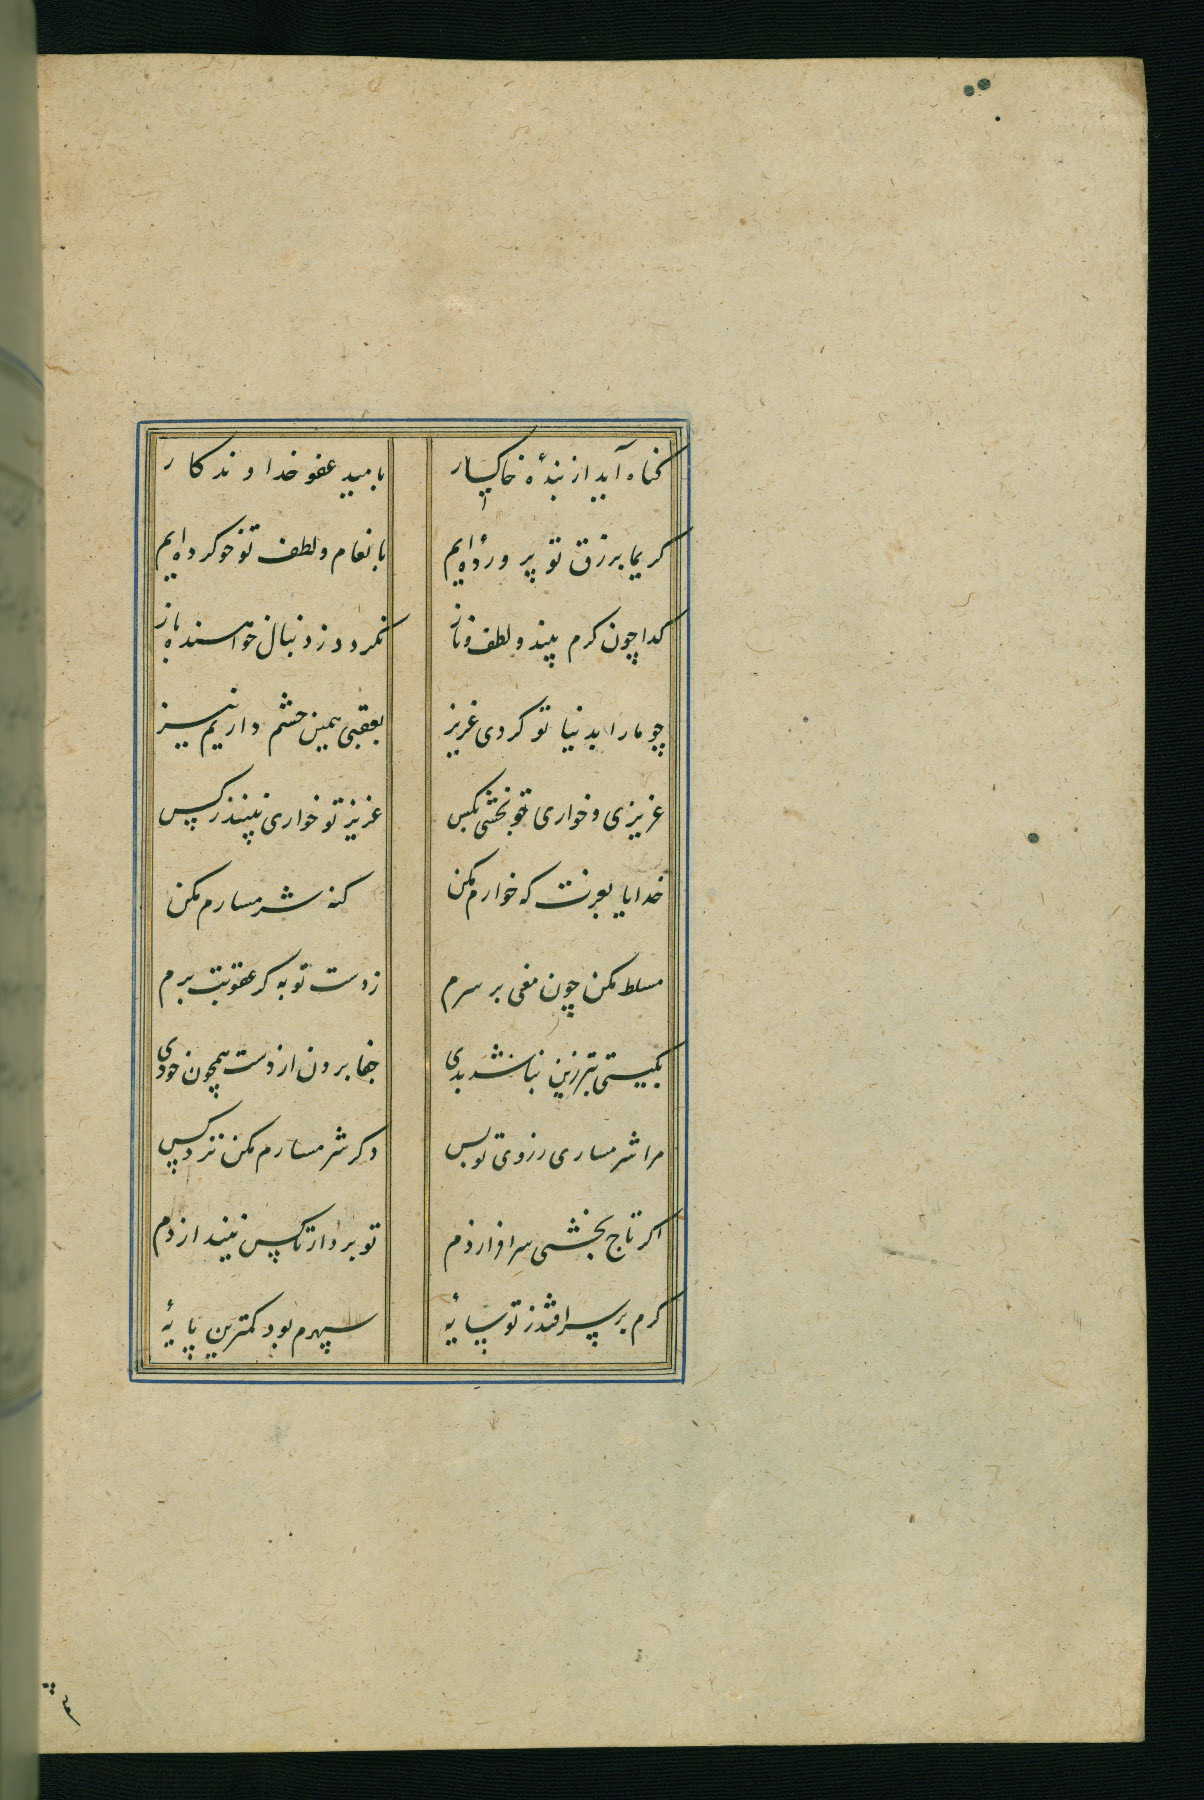 گناه آید از بندهٔ خاکسار بامید عفو خداوندگار
کریما برزق تو پرورده‌ایم بانعام و لطف تو خو کرده‌ایم
گدا چون کرم بیند و لطف و ناز نگردد ز دنبال خواهنده باز
چو ما را بدنیا تو کردی عزیز بعقبی همین چشم داریم نیز
عزیزی و خواری تو بخشی بکس عزیز تو خواری نبیند ز کس
خدایا بعزت که خوارم مکن گنه شرمسارم مکن
مسلط مکن چون منی بر سرم ز دست تو به گر عقوبت برم
بگیتی بتر زین نباشد بدی جفا بردن از دست همچون خودی
مرا شرمساری ز روی تو بس دگر شرمسارم مکن نزد کس
اگر تاج بخشی سرافرازدم تو بردار تا کس نیندازدم
گرم بر سر افتد ز تو سایهٔ سپهرم بود کمترین پایهٔ